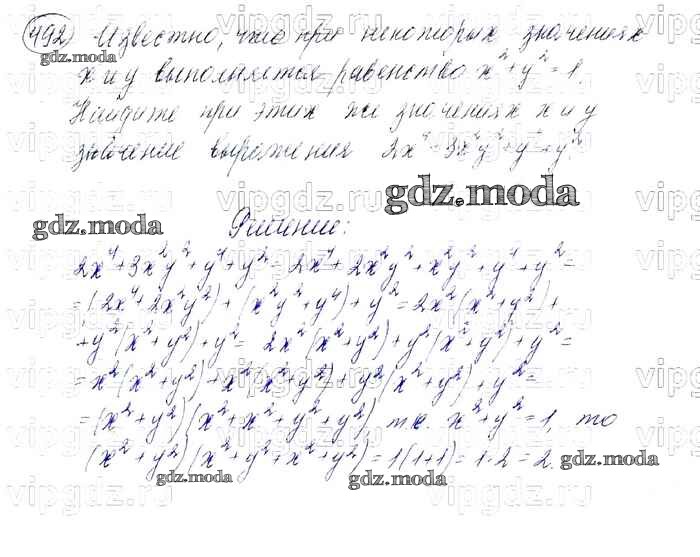 492) Известно, что при некоторых значениях
x и y выполняется равенство x²+y²=1.
Найдите при этих же значениях x и y
значение выражения 2x⁴+3x²y²+y⁴+y².
gdz.moda
gdz.moda
gdz.moda
Решение:
2x⁴+3x²y²+y⁴+y² = 2x⁴+2x²y²+x²y²+y⁴+y²=
=(2x⁴+2x²y²)+(x²y²+y⁴)+y²=2x²(x²+y²)+
+y²(x²+y²)+y²= 2x²(x²+y²)+y²(x²+y²)+y²=
=x²(x²+y²)+x²(x²+y²)+y²(x²+y²)+y²=
=(x²+y²)(x²+x²+y²+y²), т.к. x²+y²=1, то
(x²+y²)(x²+y²+x²+y²)=1(1+1)=1·2=2.
gdz.moda
gdz.moda
gdz.moda
vipgdz.ru